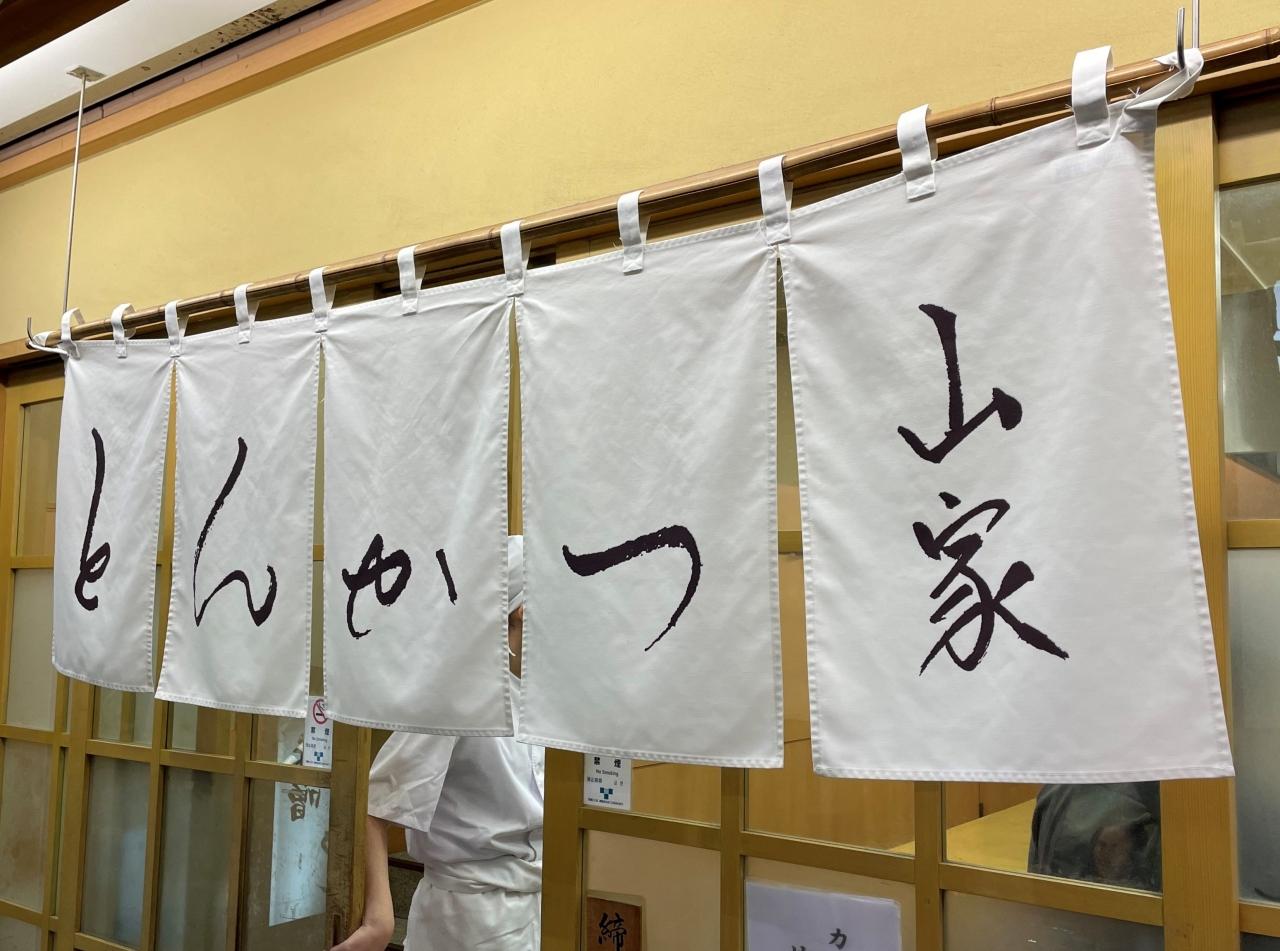 とんかつ
山家
禁煙
No Smoking
禁煙
No Smoking
締
カ